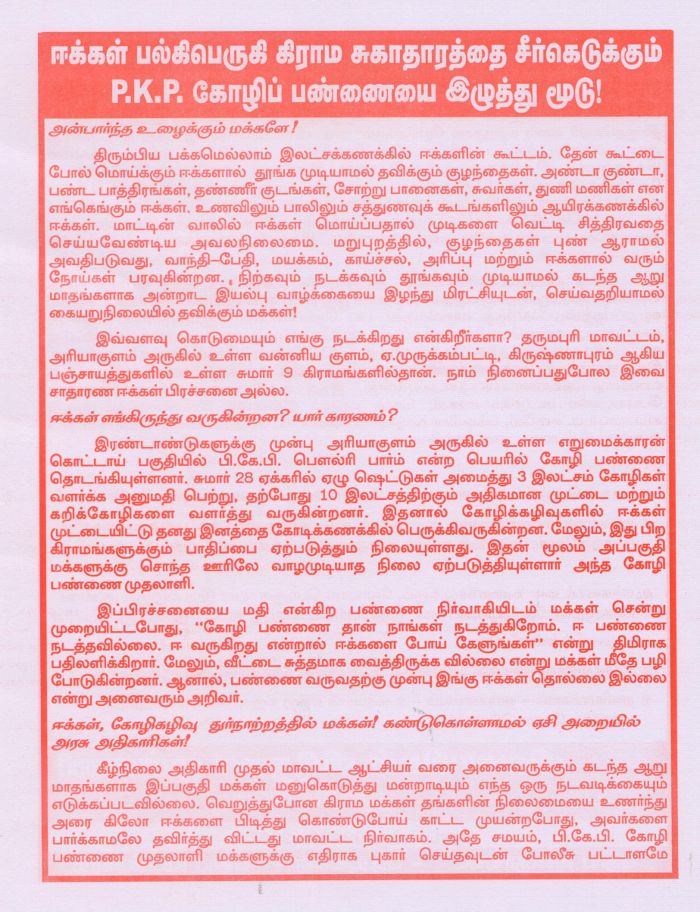 ஈக்கள் பல்கிபெருகி கிராம சுகாதாரத்தை சீர்கெடுக்கும்
P.K.P. கோழிப் பண்ணையை இழுத்து மூடு!
அன்பார்ந்த உழைக்கும் மக்களே!
திரும்பிய பக்கமெல்லாம் இலட்சக்கணக்கில் ஈக்களின் கூட்டம். தேன் கூட்டை
போல் மொய்க்கும் ஈக்களால் தூங்க முடியாமல் தவிக்கும் குழந்தைகள். அண்டா குண்டா,
பண்ட பாத்திரங்கள், தண்ணீர் குடங்கள், சோற்று பானைகள், சுவர்கள், துணி மணிகள் என
எங்கெங்கும் ஈக்கள். உணவிலும் பாலிலும் சத்துணவுக் கூடங்களிலும் ஆயிரக்கணக்கில்
ஈக்கள். மாட்டின் வாலில் ஈக்கள் மொய்ப்பதால் முடிகளை வெட்டி சித்திரவதை
செய்யவேண்டிய அவலநிலைமை. மறுபுறத்தில், குழந்தைகள் புண் ஆராமல்
அவதிபடுவது, வாந்தி-பேதி, மயக்கம், காய்ச்சல், அரிப்பு மற்றும் ஈக்களால் வரும்
நோய்கள் பரவுகின்றன. நிற்கவும் நடக்கவும் தூங்கவும் முடியாமல் கடந்த ஆறு
மாதங்களாக அன்றாட இயல்பு வாழ்க்கையை இழந்து மிரட்சியுடன், செய்வதறியாமல்
கையறுநிலையில் தவிக்கும் மக்கள்!
இவ்வளவு கொடுமையும் எங்கு நடக்கிறது என்கிறீர்களா? தருமபுரி மாவட்டம்,
அரியாகுளம் அருகில் உள்ள வன்னிய குளம், ஏ.முருக்கம்பட்டி, கிருஷ்ணாபுரம் ஆகிய
பஞ்சாயத்துகளில் உள்ள சுமார் 9 கிராமங்களில்தான். நாம் நினைப்பதுபோல இவை
சாதாரண ஈக்கள் பிரச்சனை அல்ல.
ஈக்கள் எங்கிருந்து வருகின்றன? யார் காரணம்?
இரண்டாண்டுகளுக்கு முன்பு அரியாகுளம் அருகில் உள்ள எறுமைக்காரன்
கொட்டாய் பகுதியில் பி.கே.பி. பௌல்ரி பார்ம் என்ற பெயரில் கோழி பண்ணை
தொடங்கியுள்ளனர். சுமார் 28 ஏக்கரில் ஏழு ஷெட்டுகள் அமைத்து 3 இலட்சம் கோழிகள்
வளர்க்க அனுமதி பெற்று, தற்போது 10 இலட்சத்திற்கும் அதிகமான முட்டை மற்றும்
கறிக்கோழிகளை வளர்த்து வருகின்றனர். இதனால் கோழிக்கழிவுகளில் ஈக்கள்
முட்டையிட்டு தனது இனத்தை கோடிக்கணக்கில் பெருக்கிவருகின்றன. மேலும், இது பிற
கிராமங்களுக்கும் பாதிப்பை ஏற்படுத்தும் நிலையுள்ளது. இதன் மூலம் அப்பகுதி
மக்களுக்கு சொந்த ஊரிலே வாழமுடியாத நிலை ஏற்படுத்தியுள்ளார் அந்த கோழி
பண்ணை முதலாளி.
இப்பிரச்சனையை மதி என்கிற பண்ணை நிர்வாகியிடம் மக்கள் சென்று
முறையிட்டபோது, “கோழி பண்ணை தான் நாங்கள் நடத்துகிறோம். ஈ பண்ணை
நடத்தவில்லை. ஈ வருகிறது என்றால் ஈக்களை போய் கேளுங்கள்” என்று திமிராக
பதிலளிக்கிறார். மேலும், வீட்டை சுத்தமாக வைத்திருக்க வில்லை என்று மக்கள் மீதே பழி
போடுகின்னர். ஆனால், பண்ணை வருவதற்கு முன்பு இங்கு ஈக்கள் தொல்லை இல்லை
என்று அனைவரும் அறிவர்.
ஈக்கள், கோழிகழிவு துர்நாற்றத்தில் மக்கள்! கண்டுகொள்ளாமல் ஏசி அறையில்
அரசு அதிகாரிகள்!
கீழ்நிலை அதிகாரி முதல் மாவட்ட ஆட்சியர் வரை அனைவருக்கும் கடந்த ஆறு
மாதங்களாக இப்பகுதி மக்கள் மனுகொடுத்து மன்றாடியும் எந்த ஒரு நடவடிக்கையும்
எடுக்கப்படவில்லை. வெறுத்துபோன கிராம மக்கள் தங்களின் நிலைமையை உணர்ந்து
அரை கிலோ ஈக்களை பிடித்து கொண்டுபோய் காட்ட முயன்றபோது, அவர்களை
பார்க்காமலே தவிர்த்து விட்டது மாவட்ட நிர்வாகம். அதே சமயம், பி.கே.பி. கோழி
பண்ணை முதலாளி மக்களுக்கு எதிராக புகார் செய்தவுடன் போலீசு பட்டாளமே